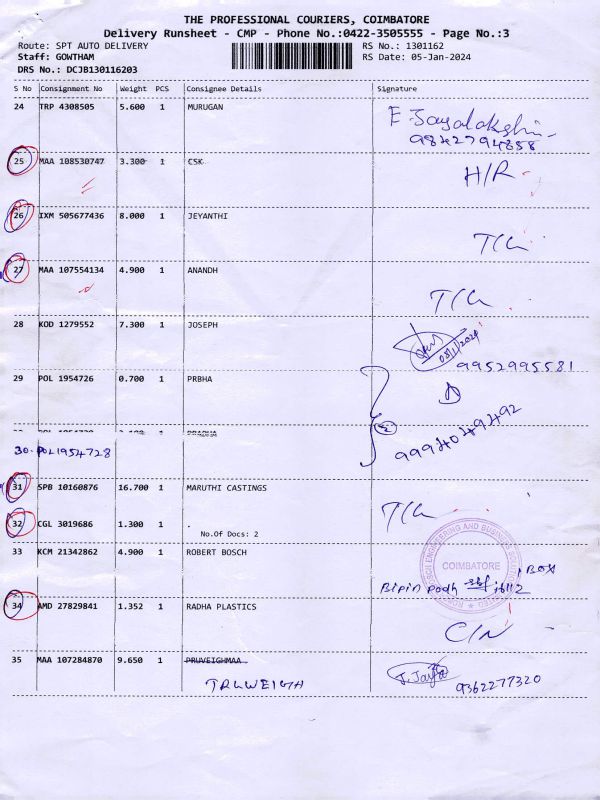 THE PROFESSIONAL COURIERS, COIMBATORE
Delivery Runsheet - CMP - Phone No.:0422-3505555 - Page No.:3
Route: SPT AUTO DELIVERY RS No.: 1301162
Staff: GOWTHAM RS Date: 05-Jan-2024
DRS No.: DCJB130116203
S No Consignment No Weight PCS Consignee Details Signature
24 TRP 4308505 5.600 1 MURUGAN E Jayalakshmi
9842794858
25 MAA 108530747 3.300 1 CSK H/R
26 IXM 505677436 8.000 1 JEYANTHI
27 MAA 107554134 4.900 1 ANANDH
28 KOD 1279552 7.300 1 JOSEPH 05/1/2024
9952995581
29 POL 1954726 0.700 1 PRBHA
PRABHA
9994049492
30-POL1954728
31 SPB 10160876 16.700 1 MARUTHI CASTINGS
32 CGL 3019686 1.300 1 .
No.Of Docs: 2
33 KCM 21342862 4.900 1 ROBERT BOSCH COIMBATORE
1 BOX
Bipin
34 AMD 27829841 1.352 1 RADHA PLASTICS C/N
35 MAA 107284870 9.650 1 PRUVEIGHMAA
TRUWEIGH
9362277320